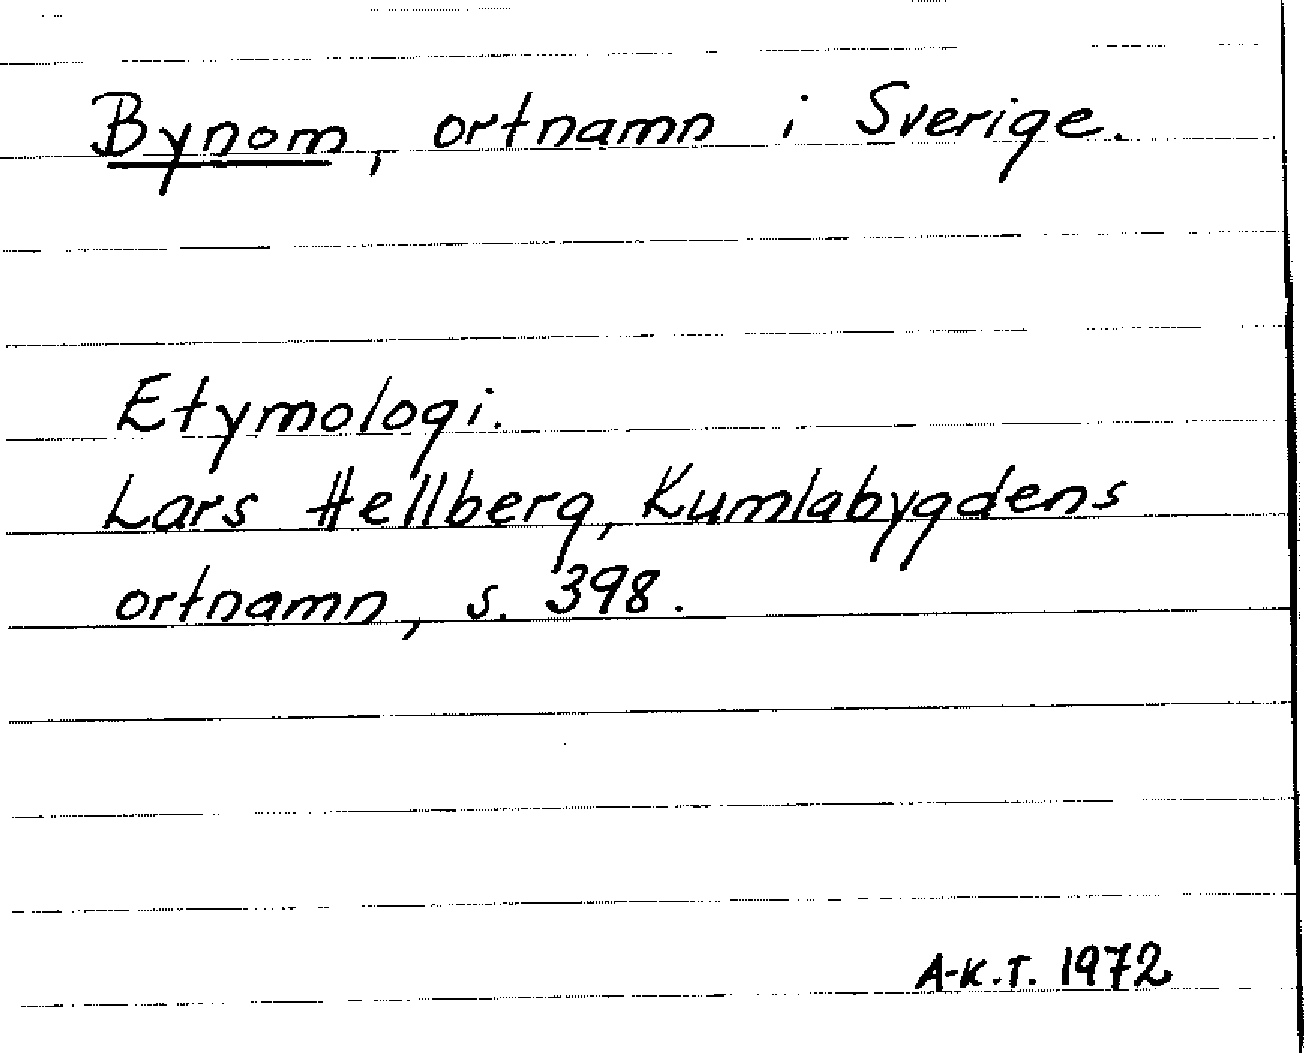 Bynom, ortnamn i Sverige.
Etymologi.
Lars Hellberg, Kumlabygdens
ortnamn, s. 398.
A-K.T. 1972